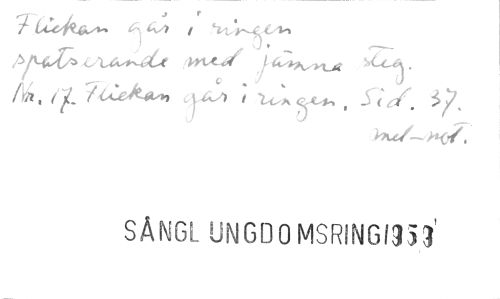 Flickan går i ringen
spatserande med jämna steg.
Nr. 17. Flickan går i ringen. Sid. 37.
mel-not.
SÅNGL UNGDOMSRING 1959